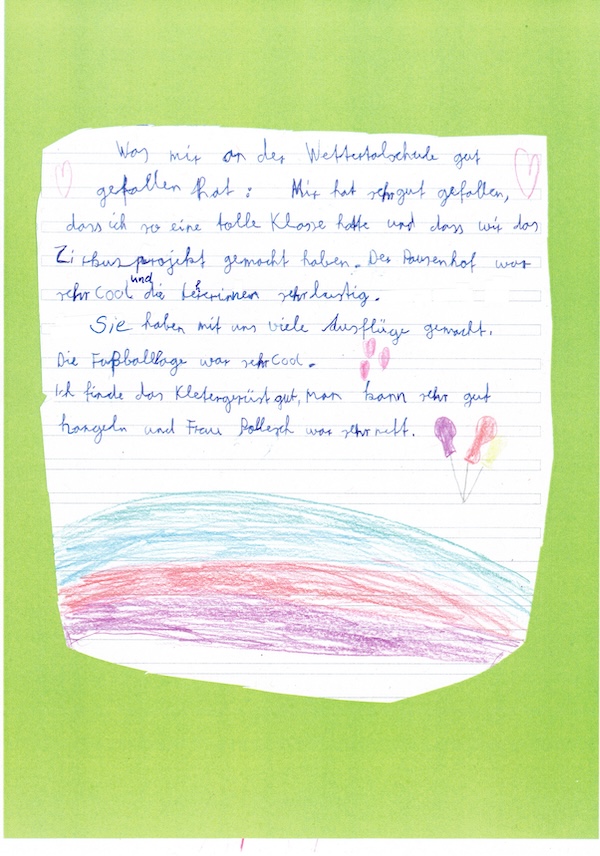 Was mir an der Wettertalschule gut
gefallen hat: Mir hat sehr gut gefallen,
dass ich so eine tolle Klasse hatte und dass wir das
Zirkusprojekt gemacht haben. Der Pausenhof war
sehr cool und die Lehrerinnen sehr lustig.
Sie haben mit uns viele Ausflüge gemacht.
Die Fußballtage war sehr cool.
Ich finde das Kletergerüst gut, man kann sehr gut
hangeln und Frau war sehr nett.